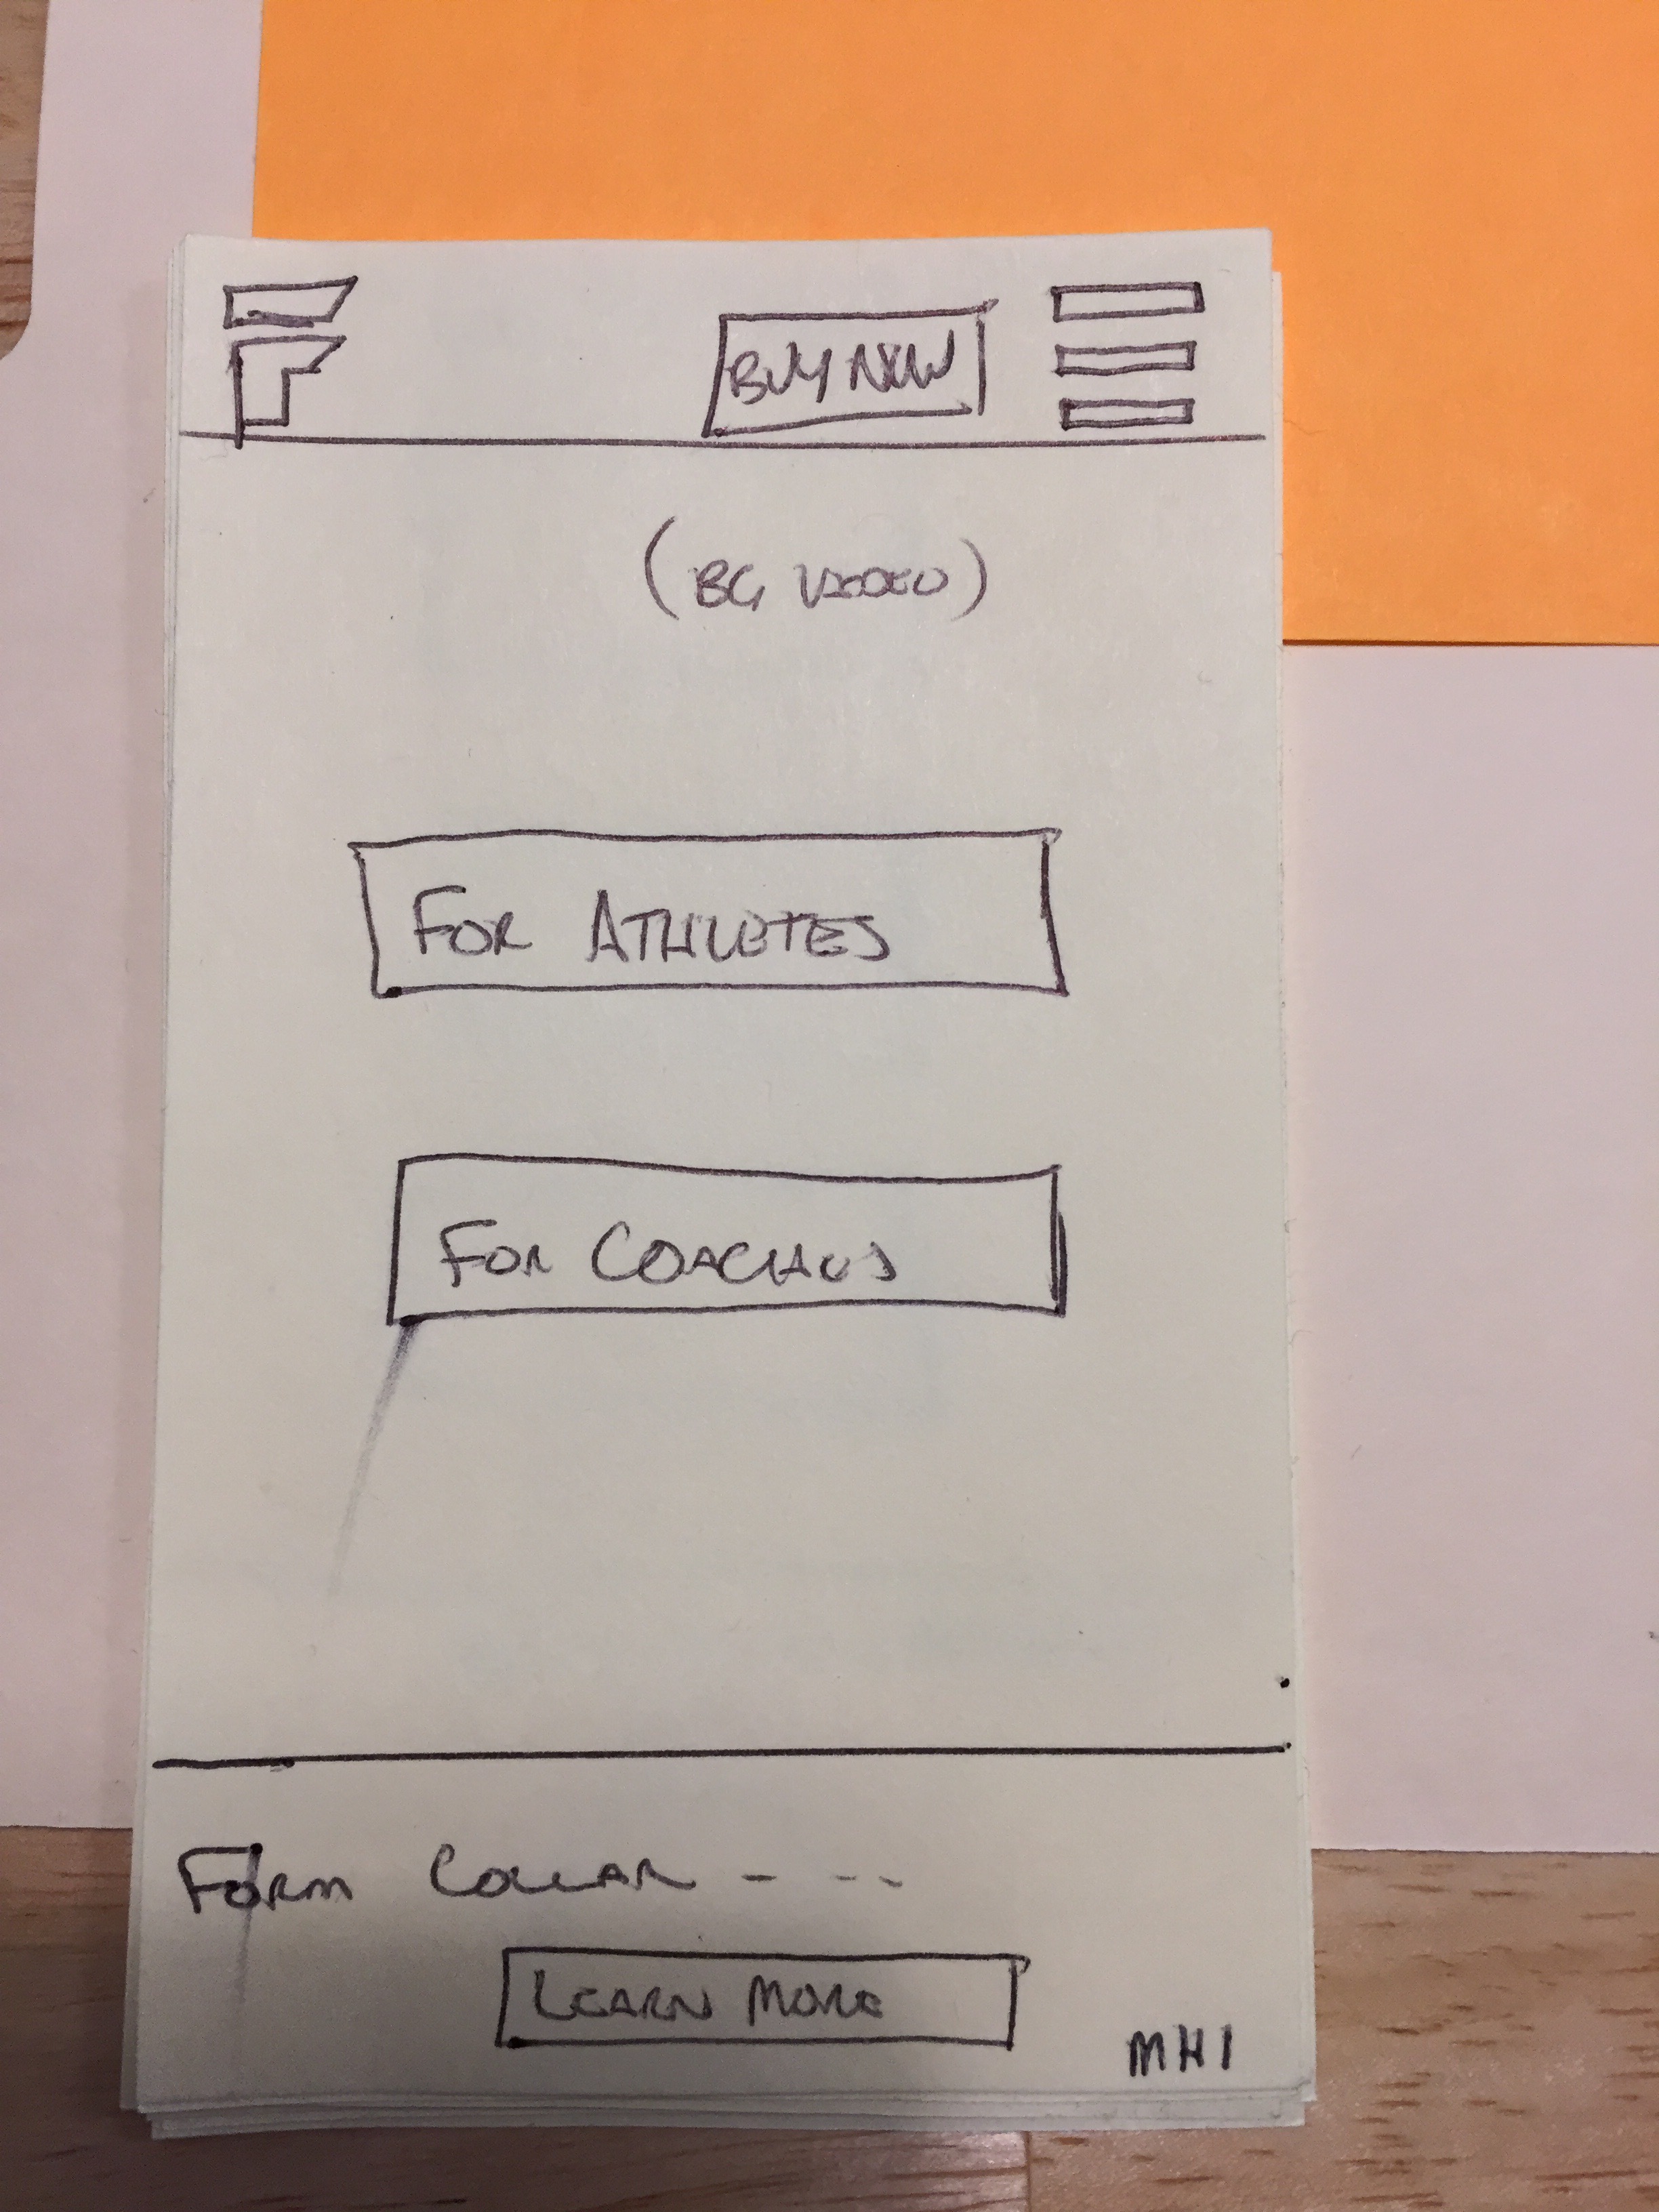 BUY NOW
(BG VIDEO)
FOR ATHLETES
FOR COACHES
FORM COLLAR - - - -
LEARN MORE
MH1